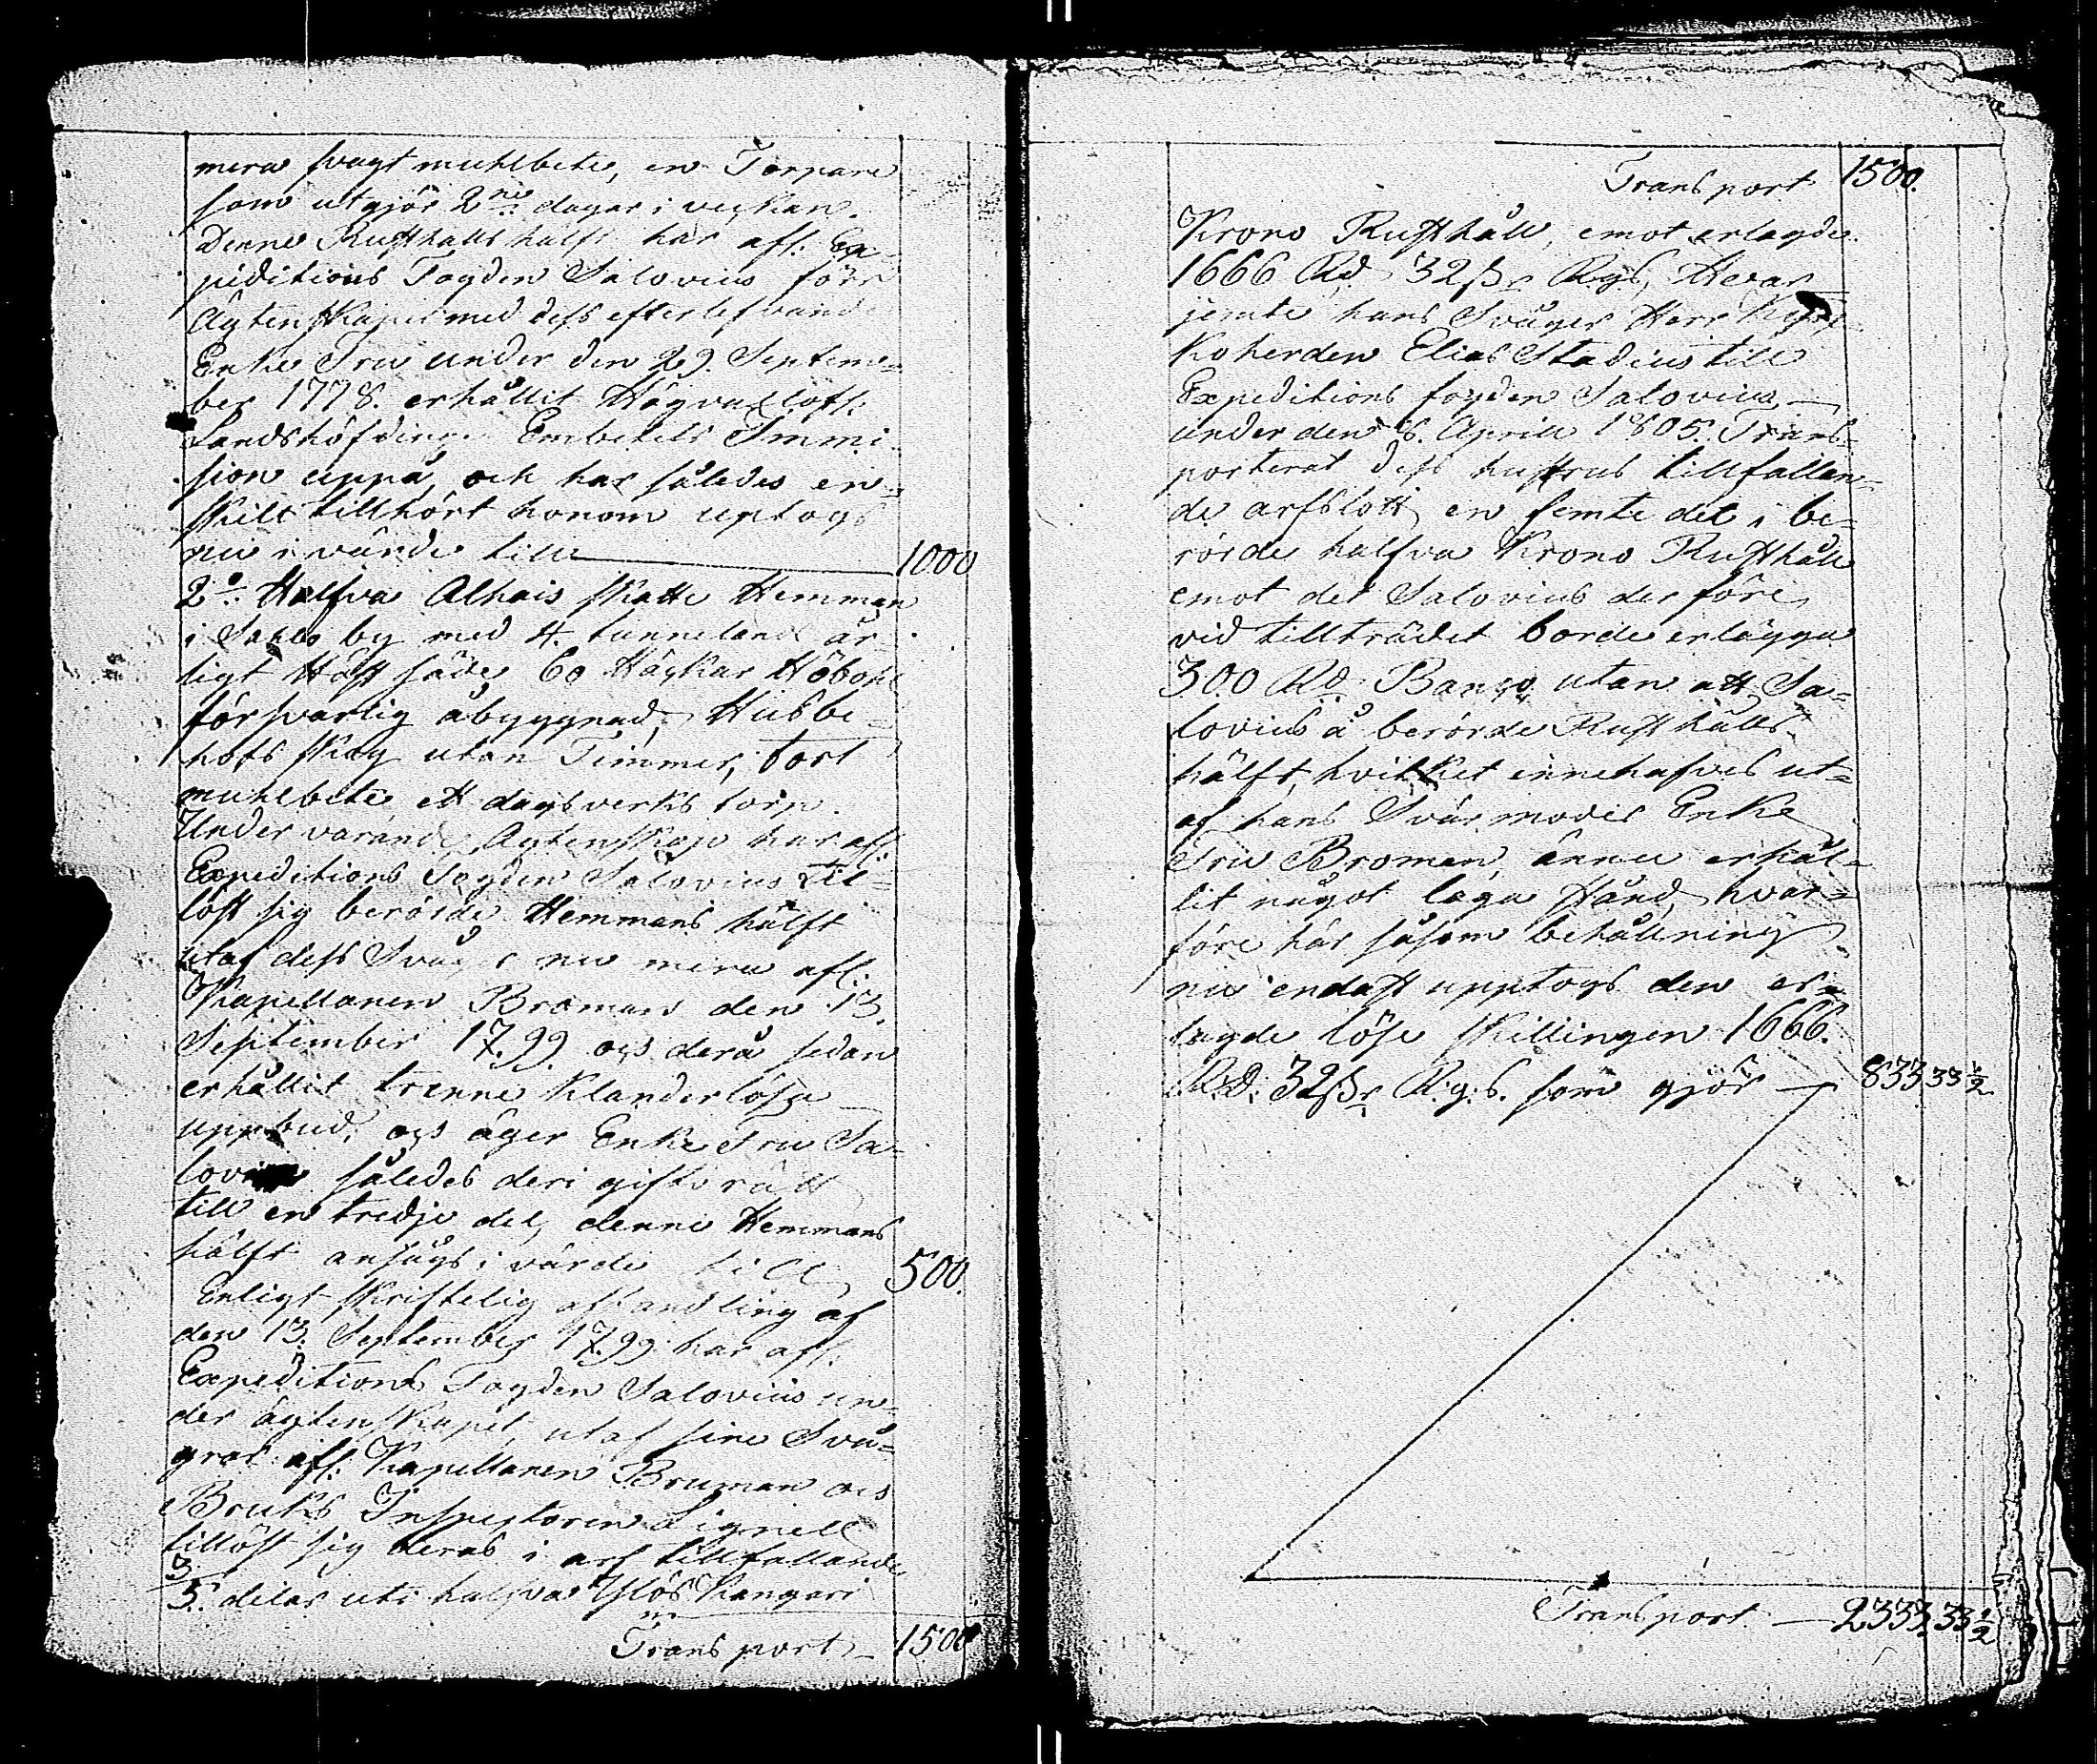 mera svagt muhlbete, en Torpare
som utgjör 2ne dagar i veckan.
Denne Rusthålls hälft har afl. Ex-
peditions Fogden Salovius förr
Ägtenskapet med dess efterlefvande
Enke Fru under den 29. Septem-
ber 1778. erhållit Högvällofl:
Landshöfdinge Embetets Immi-
sion uppå, och har således en-
skilt tillhört honom uptogs
nu i värde till 1000
2o. Halfva Alhais skatte Hemman
i by med 4. tunneland år-
ligt Höst säde 60 Häckar Höbohl
försvarlig åbyggnad, Husbe-
hofs skog utan Timmer, tort
muhlbete ett dagsverks torp.
Under varande Agtenskap har afl
Expeditions Fogden Salovius til-
löst sig berörde Hemmans hälft
utaf dess Svåger nu mera afl:
Kapellanen Broman den 13.
September 1799 och derå sedan
erhållit trenne Klanderlösa
uppbud, och äger Enke Fru Sa-
lovius således deri giftorätt
till en tredje del, denne Hemmans
hälft ansågs i värde till 500.
Enligt skriftelig afhandling af
den 13. September 1799 har afl:
Expeditions Fogden Salovius un-
der ägtenskapet, utaf sine Svå-
grar afl: Kapellanen Bruman och
Bruks Inspectoren Lignell
tillöst sig deras i arf tillfallande
3/5. delar uti halfva Kangari
Transport 1500
Transport 1500.
Krono Rusthåll, emot erlagde
1666 Rd 32 sr Rgs, Hvar-
jemte hans Svåger Herr
Koherden Elias Stadius till
Expeditions fogden Salovius
under den 8. Aprill 1805. Trans-
porterat dess hustrus tillfallen-
de arfslott en femte del i be-
rörde halfva Krono Rusthåll
emot det Salovius der före
vid tillträdet borde erlägga
300 Rd Banco utan att Sa-
lovius å berörde Rusthålls
hälft, hvilket innehafves ut-
af hans Svärmoder Enke
Fru Broman, ännu erhål-
lit något laga stånd, hvar-
före här såsom behållning
nu endast upptogs den er-
lagde löse skillingen 1666.
Rd: 32 sr R.g.s. som gjör 833 33 1/2
Transport 2333. 33 1/2